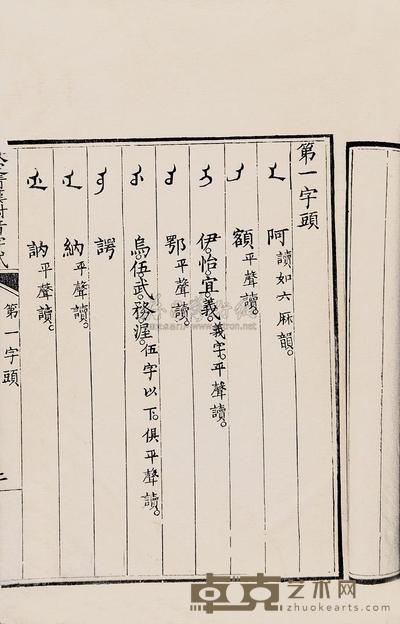 第一字頭
ᠠ 阿讀如六麻韻。
ᡝ 額平聲讀。
ᡳ 伊。怡。宜。義。義字平聲讀。
ᠣ 鄂平聲讀。
ᡠ 烏。伍。武。務。渥。伍字以下。俱平聲讀。
ᡡ 諤
ᠨᠠ 納平聲讀。
ᠨᡝ 訥平聲讀。
漢對音字式
第一字頭
艺术网
zhuokearts.com